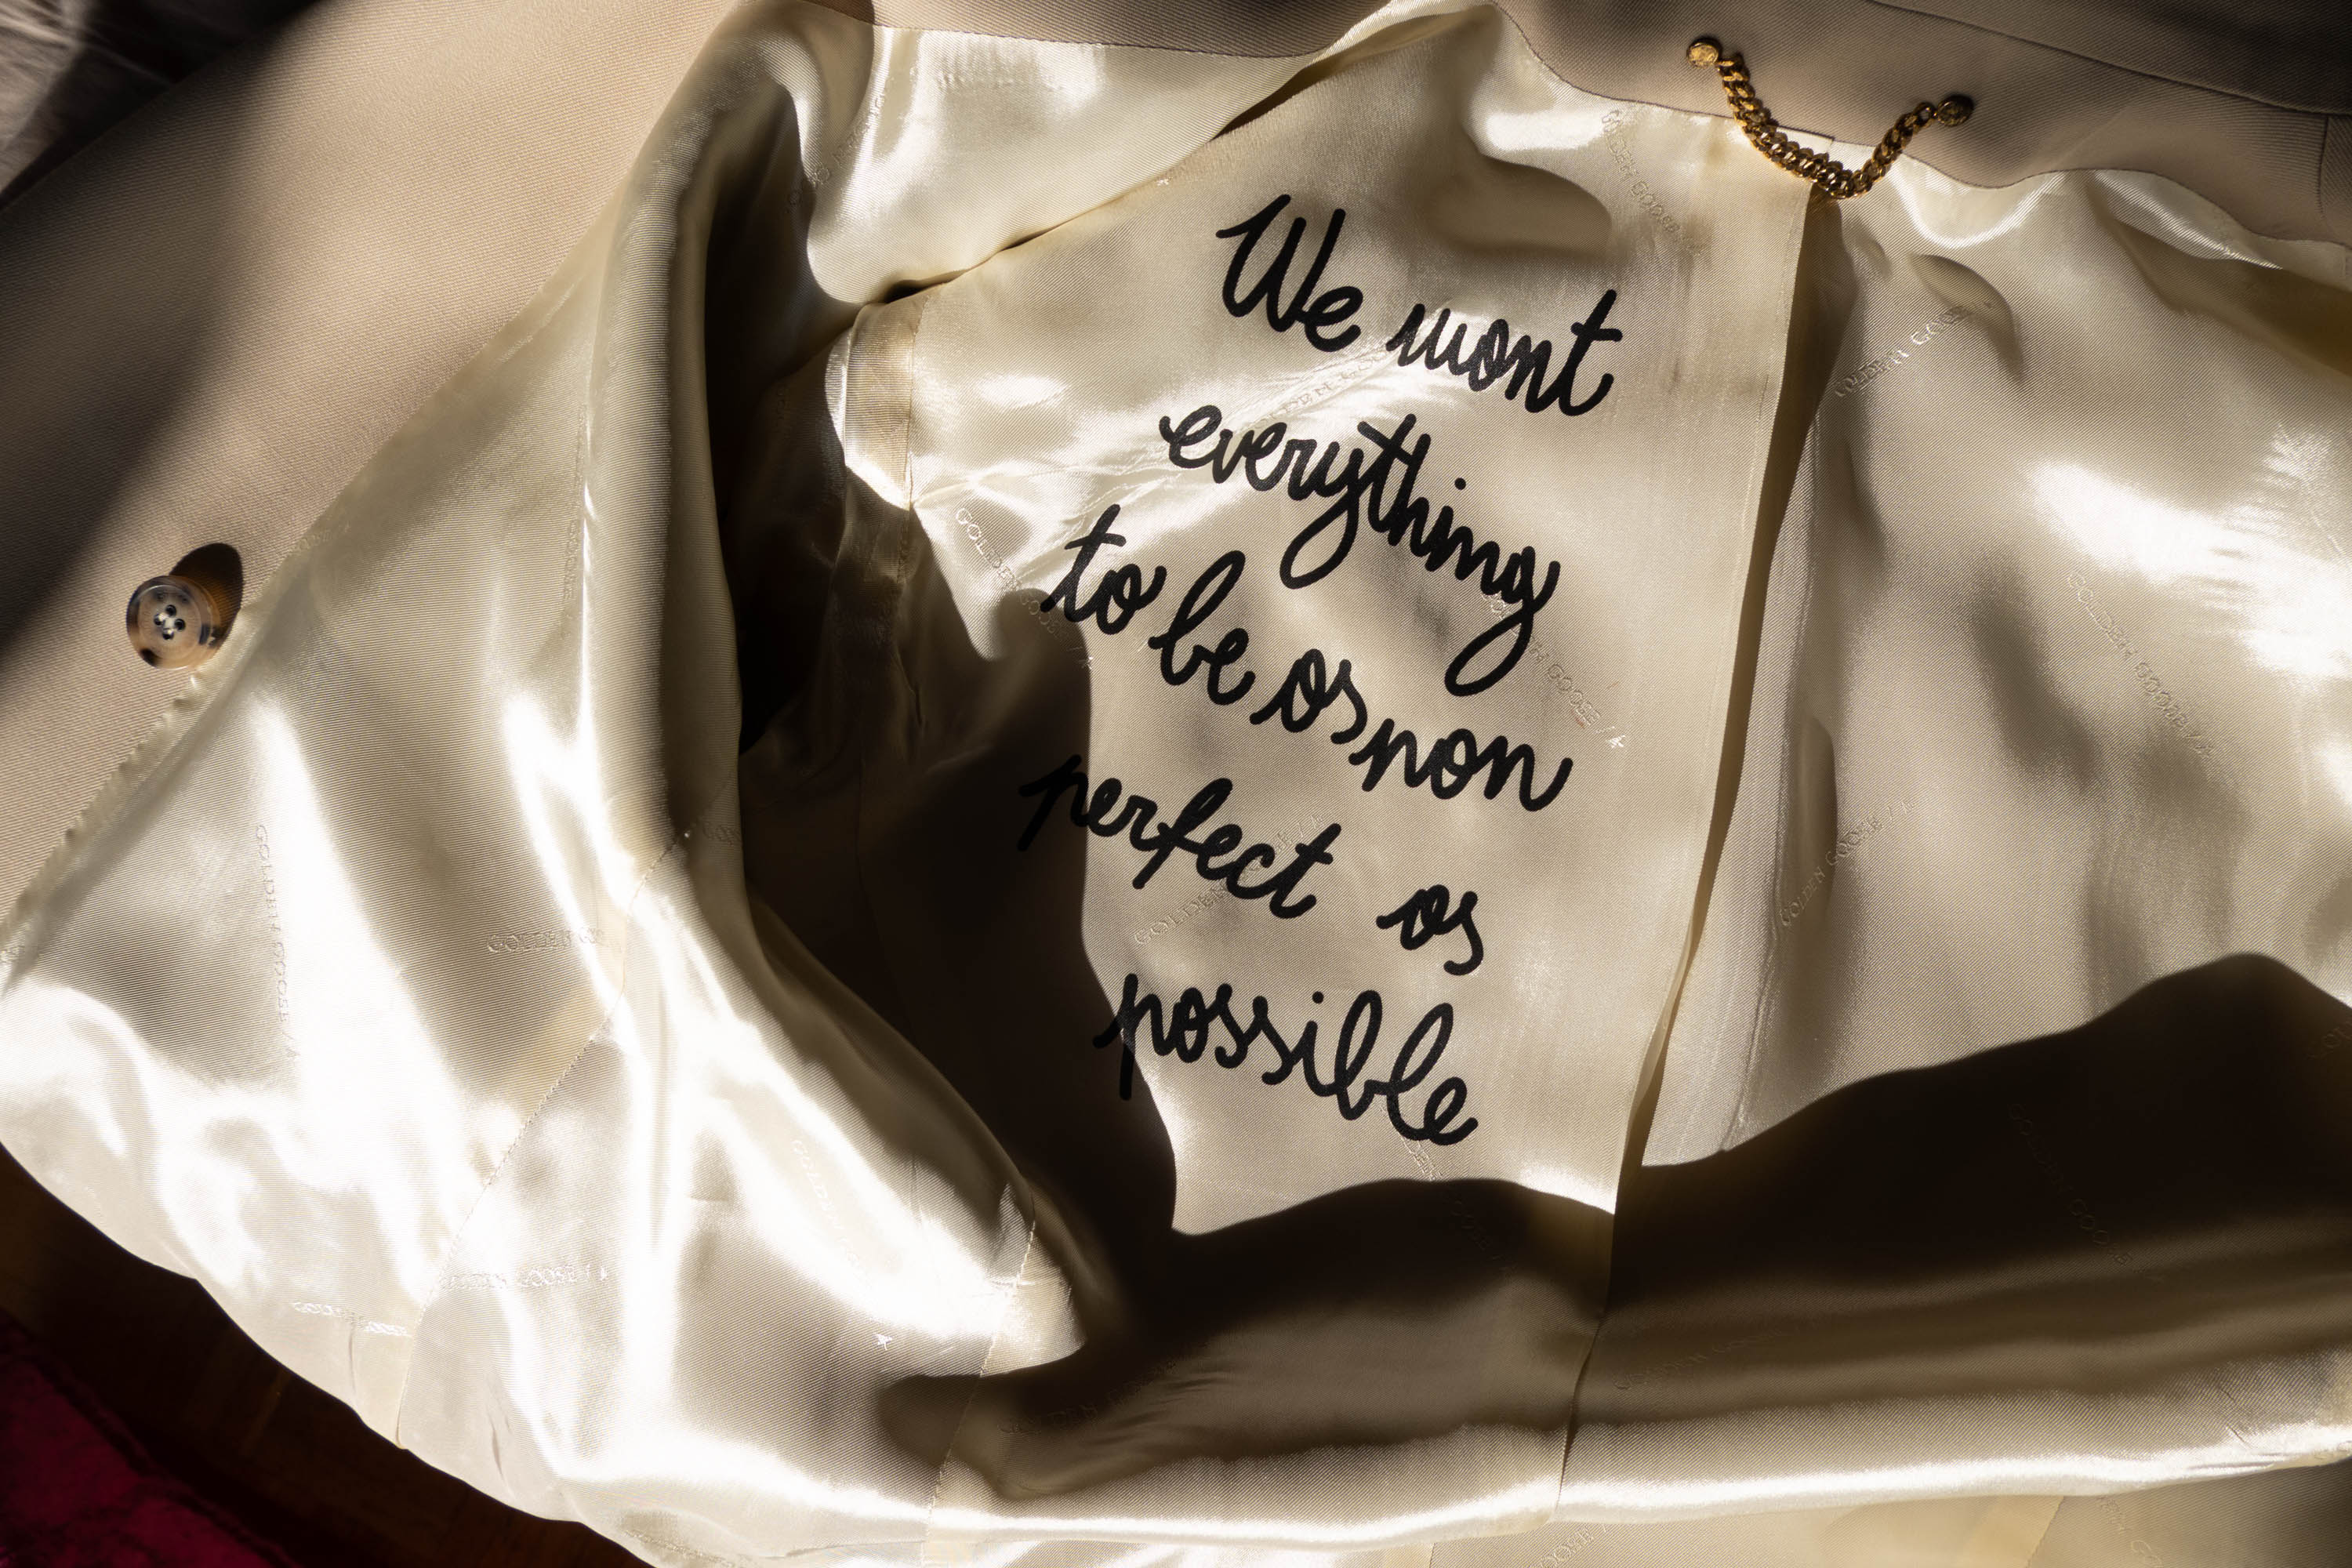 We want
everything
to be as non
perfect as
possible
GOLDEN GOOSE /
GOLDEN GOOSE
GOLDEN GOOSE /
GOLDEN GOOSE /
GOLDEN GOOSE /
GOLDEN GOOSE /
GOLDEN GOOSE /